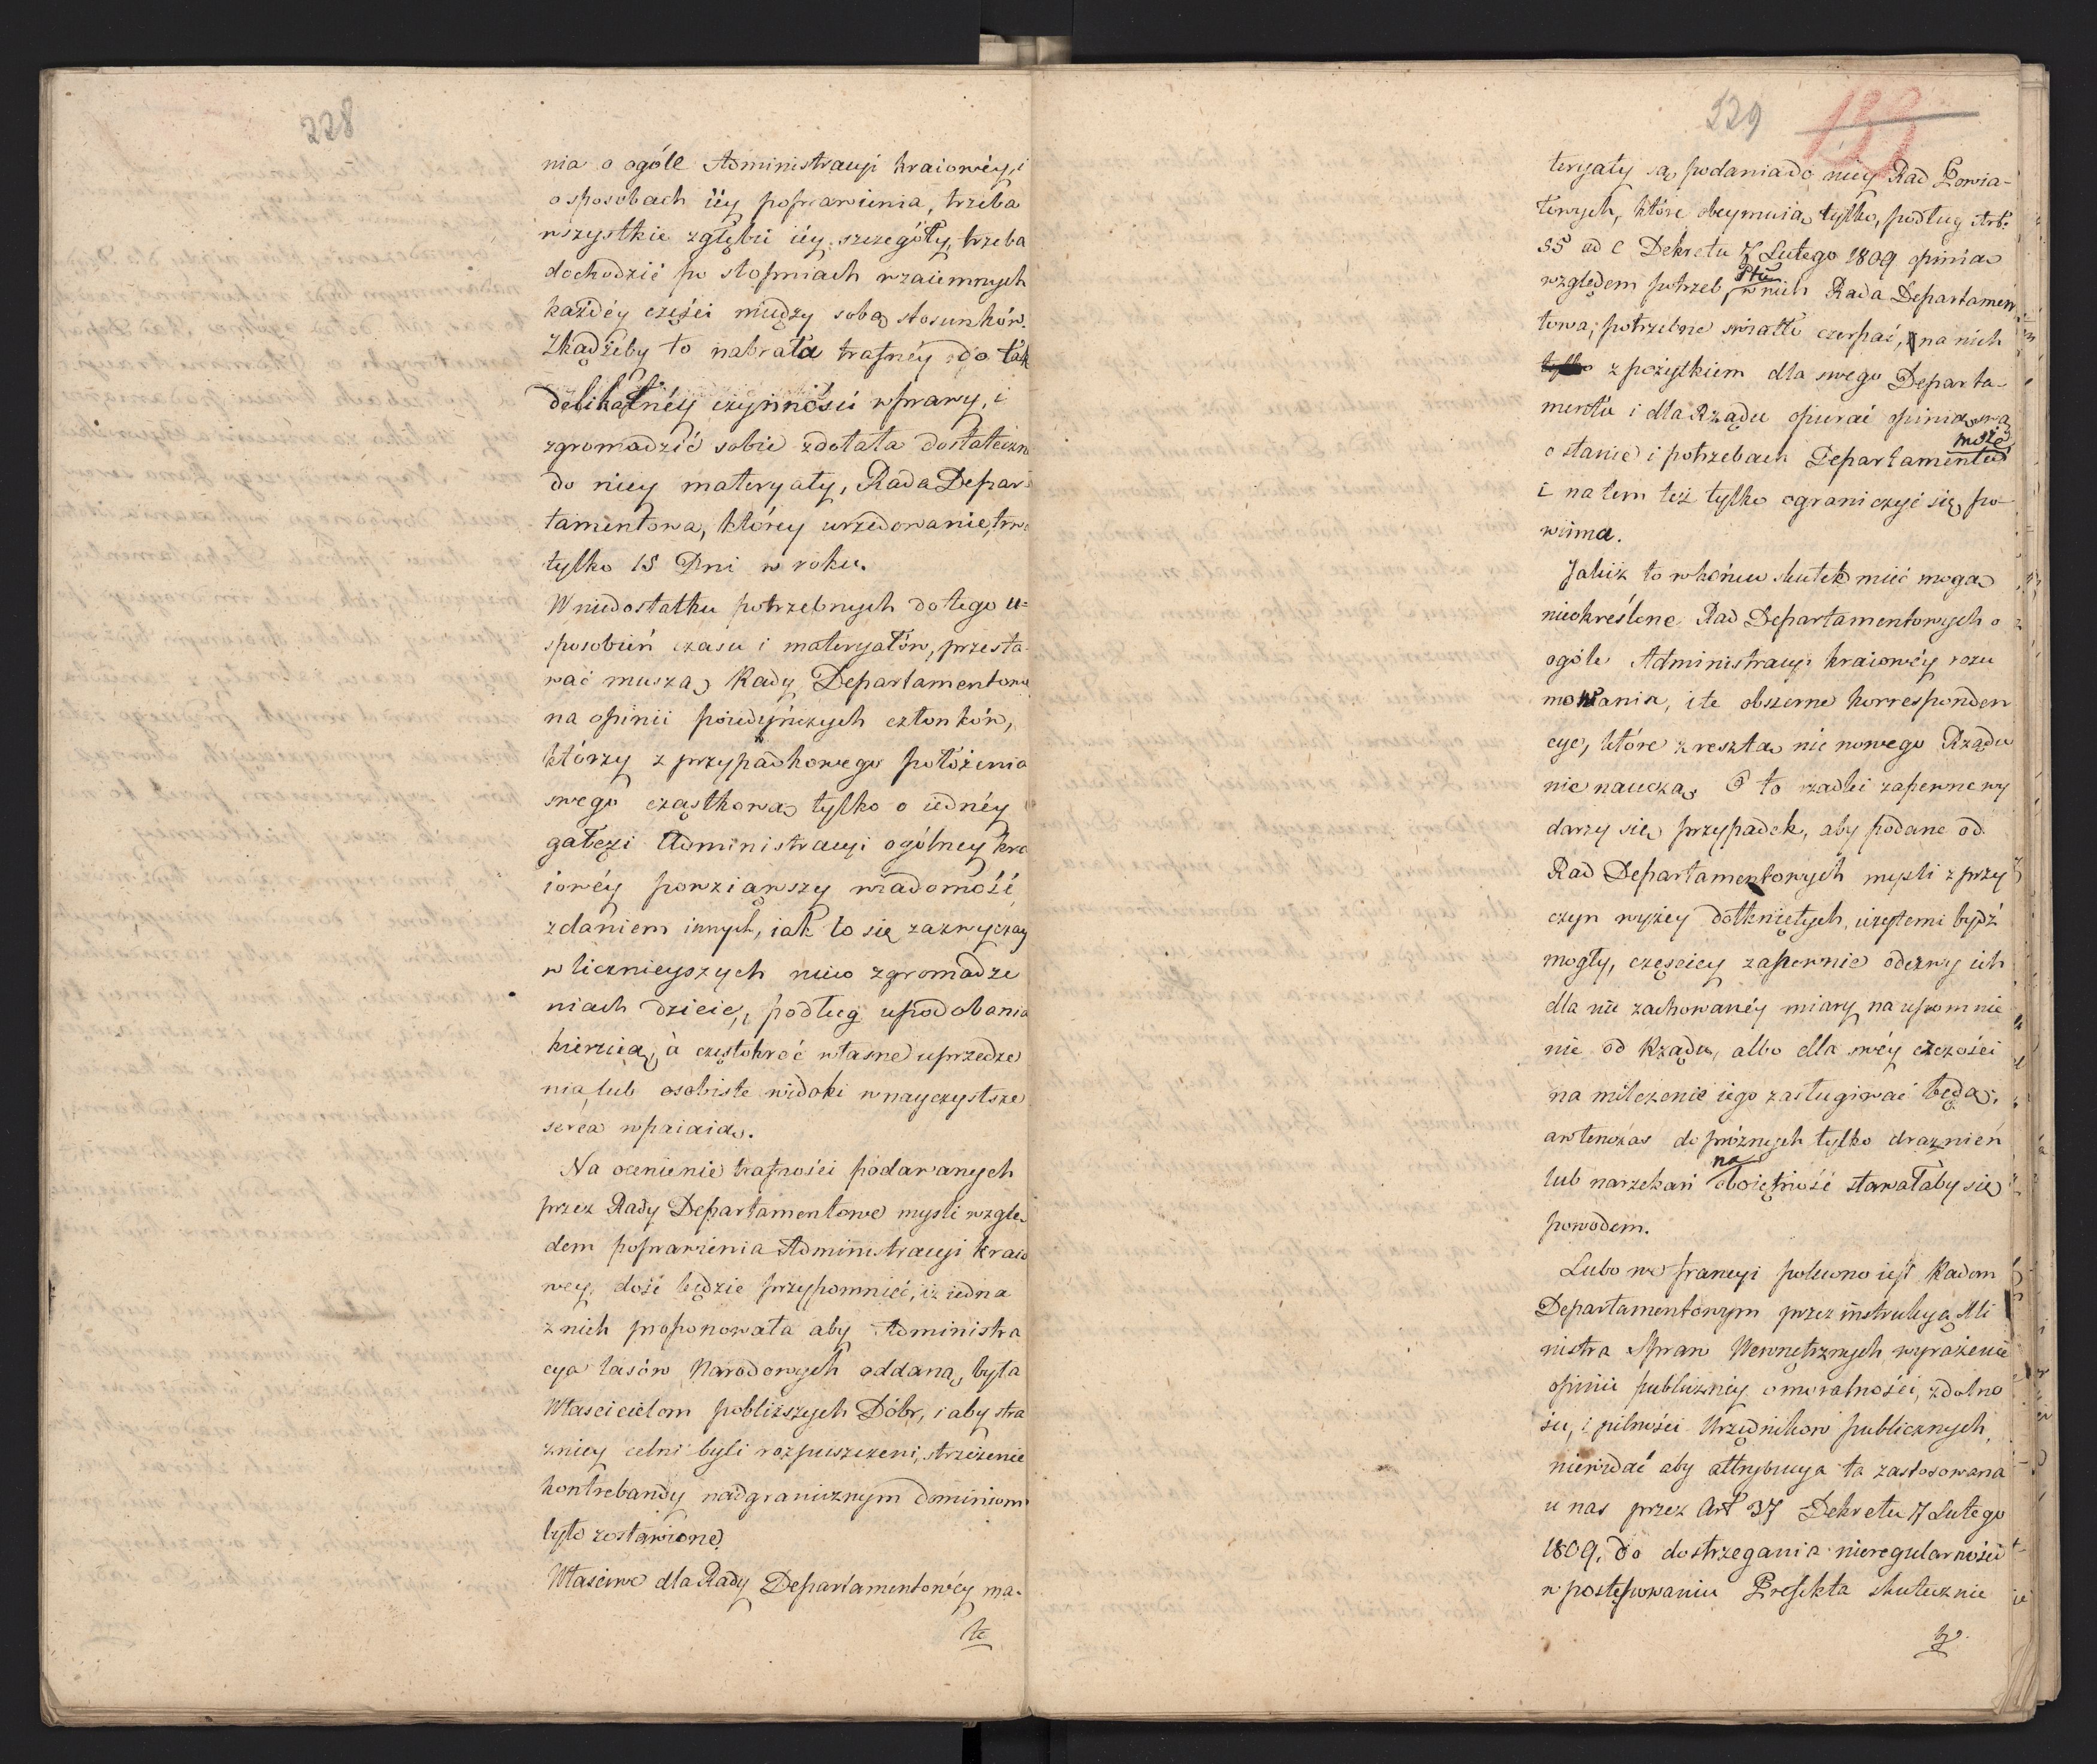 228
nia o ogóle Administracyi kraiowéy, i
o sposobach iéy poprawienia, trzeba
wszystkie zgłębić iéy szczegóły, trzeba
dochodzić po stopniach wzaiemnych
każdéy części między sobą stosunków.
Zkądżeby to nabrała trafnéy do tak
delikatnéy czynności wprawy, i
zgromadzić sobie zdołała dostateczne
do niey materyały, Rada Depar-
tamentowa, którey urzędowanie trwa
tylko 15 Dni w roku.
W niedostatku potrzebnych do tego u=
sposobień czasu i materyałów, przesta-
wać muszą Rady Departamentowe
na opinii poiedyńczych członków,
którzy z przypadkowego położenia
swego cząstkową tylko o iednéy
gałęzi Administracyi ogólney kra
iowéy powziąwszy wiadomość,
zdaniem innych, iak to się zazwyczay
w licznieyszych nieco zgromadze
niach dzieie, podług upodobania
kieruią, à częstokroć własne uprzedze
nia, lub osobiste widoki w nayczystsze
serca wpaiaią.
Na ocenienie trafności podawanych
przez Rady Departamentowe myśli wzglę
dem poprawienia Administracyi kraio
wey, dość będzie przypomnieć, iż iedna
z nich proponowała aby Administra
cya lasów Narodowych oddaną była
Właścicielom pobliższych Dóbr, i aby stra
żnicy celni byli rozpuszczeni, strzeżenie
kontrebandy nadgranicznym dominiom
było zostawione.
Właściwe dla Rady Departamentowéy ma-
te
229 133
teryały są podania do niey Rad Powia-
towych, które obeymuią tylko, podług Art:
55 ad C Dekretu 7 Lutego 1809 opinią
względem potrzeb, Ptu w nich Rada Departamen
towa, potrzebne światło czerpać, na nich
tylko z pożytkiem dla swego Departa-
mentu i dla Rządu opierać opinią swą
może
o stanie i potrzebach Departamentu
i na tem też tylko ograniczyć się po-
winna.
Jakiż to w końcu skutek mieć mogą
nieokreślone Rad Departamentowych o
ogóle Administracyi kraiowéy rozu
mowania, i te obszerne korresponden
cye, które zresztą nic nowego Rządu
nie nauczą. O to rzadki zapewne wy
darzy się przypadek, aby podane od
Rad Departamentowych myśli z przy
czyn wyżey dotkniętych, użytemi bydź
mogły, częściey zapewnie odezwy ich
dla nie zachowanéy miary na upomnie
nie od Rządu, albo dla swéy czczości
na milczenie iego zasługiwać będą,
a wtenczas do próżnych tylko drażnień
lub narzekań na oboiętność stawałaby się
powodem.
Lubo we francyi polecono iest Radom
Departamentowym przez instrukcyą Mi
nistra Spraw Wewnętrznych wyrażenie
opinii publiczney o moralności, zdolno
ści, i pilności Urzędników publicznych,
niewidać aby attrybucya ta zastosowana
u nas przez Art 37 Dekretu 7 Lutego
1809, do dostrzegania nieregularności
w postępowaniu Prefekta skutecznie